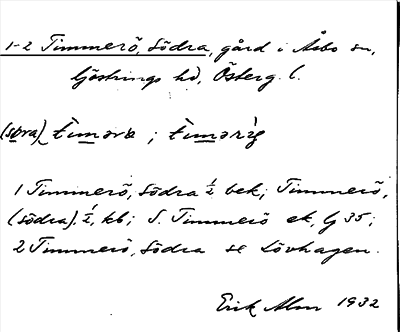 1-2 Timmerö, Södra, gård i Åsbo sn,
Göstrings hd, Österg. l.
(søra) timərə ; timərìg
1 Timmerö, Södra ½ bek; Timmerö,
(södra). ½, kb; S. Timmerö ek, G 35;
2 Timmerö, Södra se Lövhagen.
Erik Alm 1932